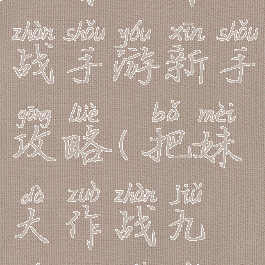 zhàn shǒu yóu xīn shǒu
战手游新手
gōng lüè bǎ mèi
攻略(把妹
dà zuò zhàn jiǔ
大作战九